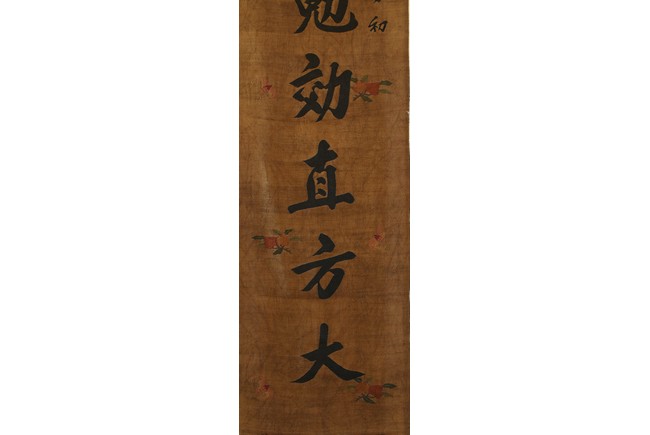 和
勉效直方大